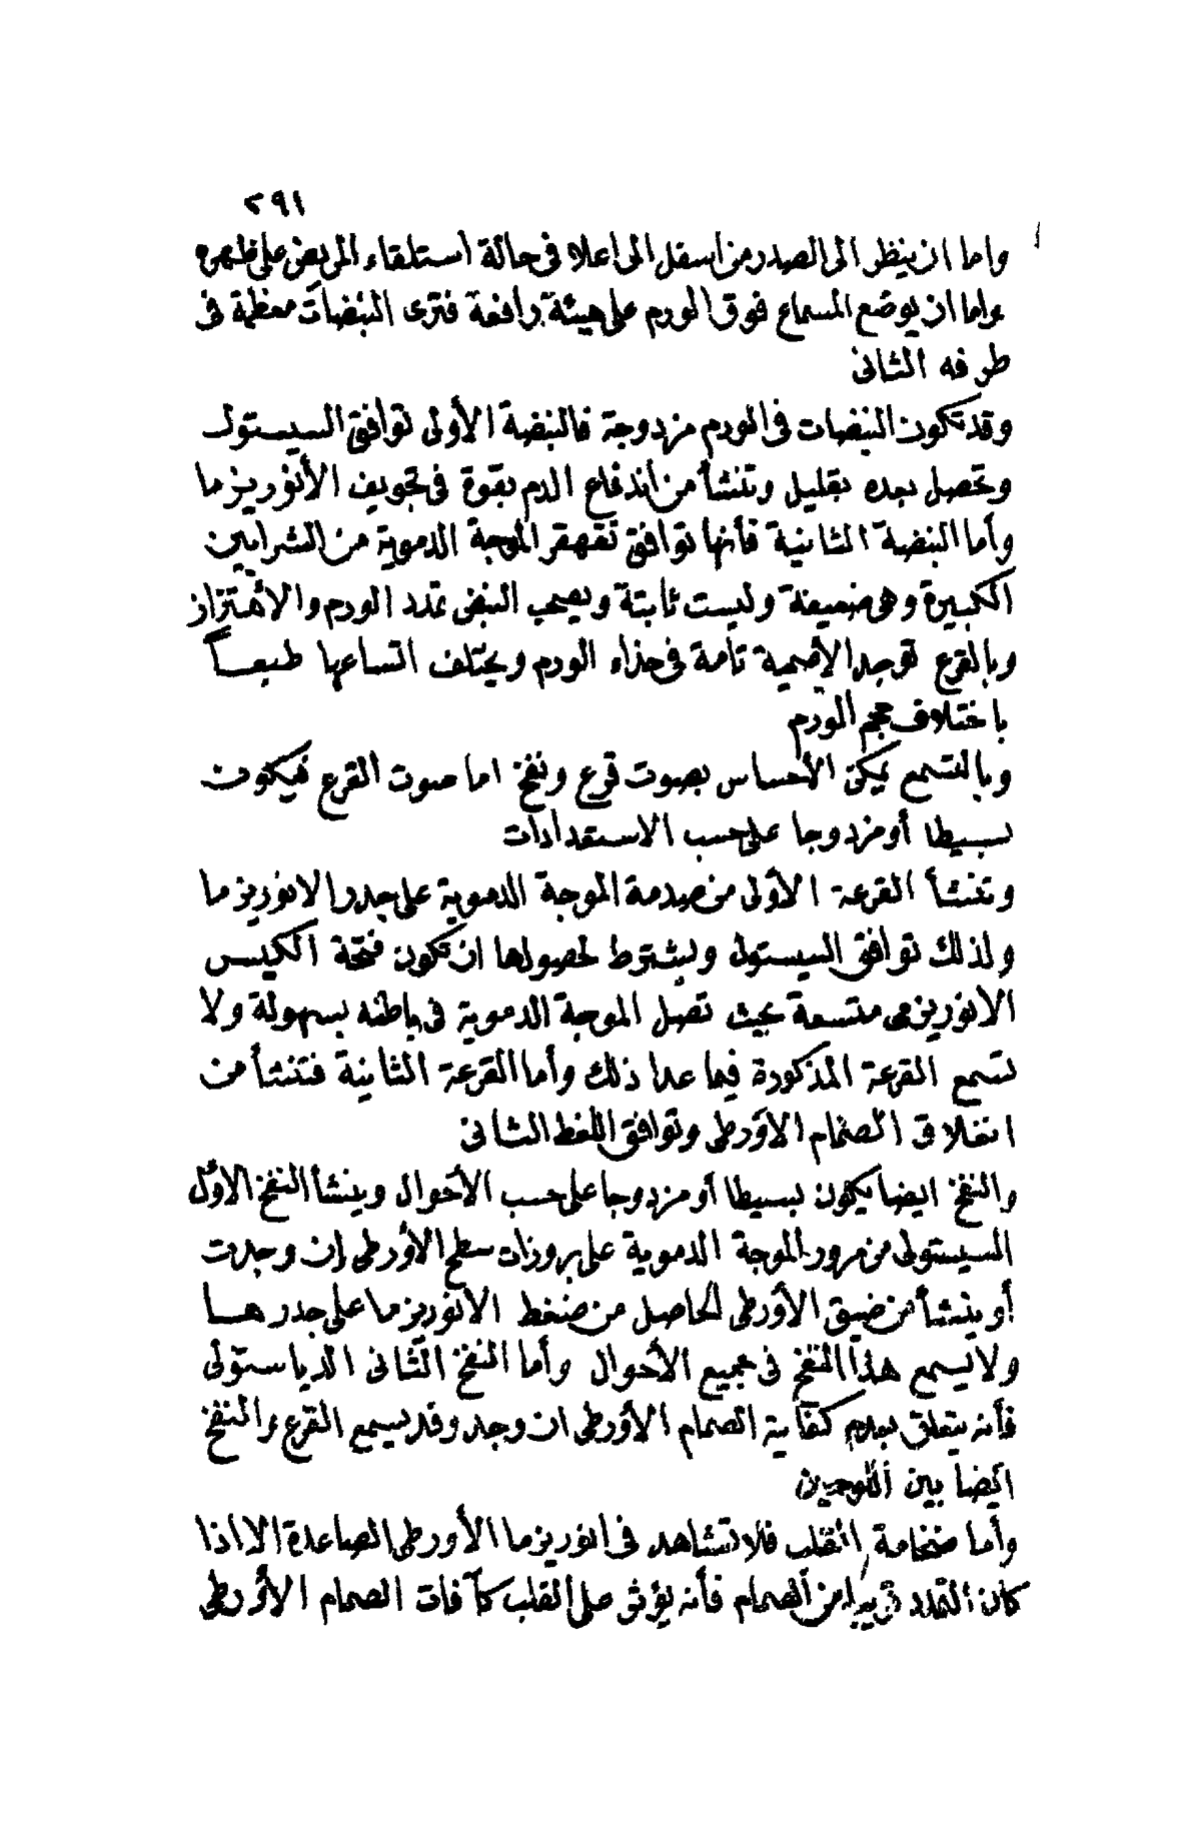 ٢٩١
واما ان ينظر الى الصدر من اسفل الى اعلا فى حالة استلقاء المريض على ظهره
واما ان يوضع المسماع فوق الورم على هيئة رافعة فترى النبضات معظمة فى
طرفه الثانى
وقد تكون النبضات فى الورم مزدوجة فالنبضة الأولى توافق السيستول
وتحصل بعده بقليل وتنشأ من أندفاع الدم بقوة فى تجويف الأنوريزما
وأما النبضة الثانية فأنها توافق تقهقر الموجة الدموية من الشرايين
الكبيرة وهى ضعيفة وليست ثابتة ويصحب النبض تمدد الورم والأهتزاز
وبالقرع توجد الأصمية تامة فى حذاء الورم ويختلف اتساعها طبعاً
باختلاف حجم الورم
وبالتسمع يمكن الأحساس بصوت قرع ونفخ اما صوت القرع فيكون
بسيطا أو مزدوجا على حسب الاستعدادات
وتنشأ القرعة الأولى من صدمة الموجة الدموية على جدر الانوريزما
ولذلك توافق السيستول ويشترط لحصولها ان تكون فتحة الكيس
الانوريزمى متسعة بحيث تصل الموجة الدموية فى باطنه بسهولة ولا
تسمع القرعة المذكورة فيما عدا ذلك وأما القرعة الثانية فتنشأ من
انغلاق الصمام الاورطى وتوافق اللغط الثانى
والنفخ ايضا يكون بسيطا أو مزدوجا على حسب الأحوال وينشأ النفخ الاول
السيستولى من مرور الموجة الدموية على بروزات سطح الأورطى إن وجدت
أو ينشأ من ضيق الأورطى الحاصل من ضغط الانوريزما على جدرها
ولا يسمع هذا النفخ فى جميع الأحوال وأما النفخ الثانى الدياستولى
فأنه يتعلق بعدم كفاية الصمام الأورطى ان وجد وقد يسمع القرع والنفخ
ايضا بين اللوحين
وأما ضخامة القلب فلا تشاهد فى انوريزما الأورطى الصاعدة الا اذا
كان التمدد قريبا من الصمام فأنه يؤثر على القلب كآفات الصمام الأورطى